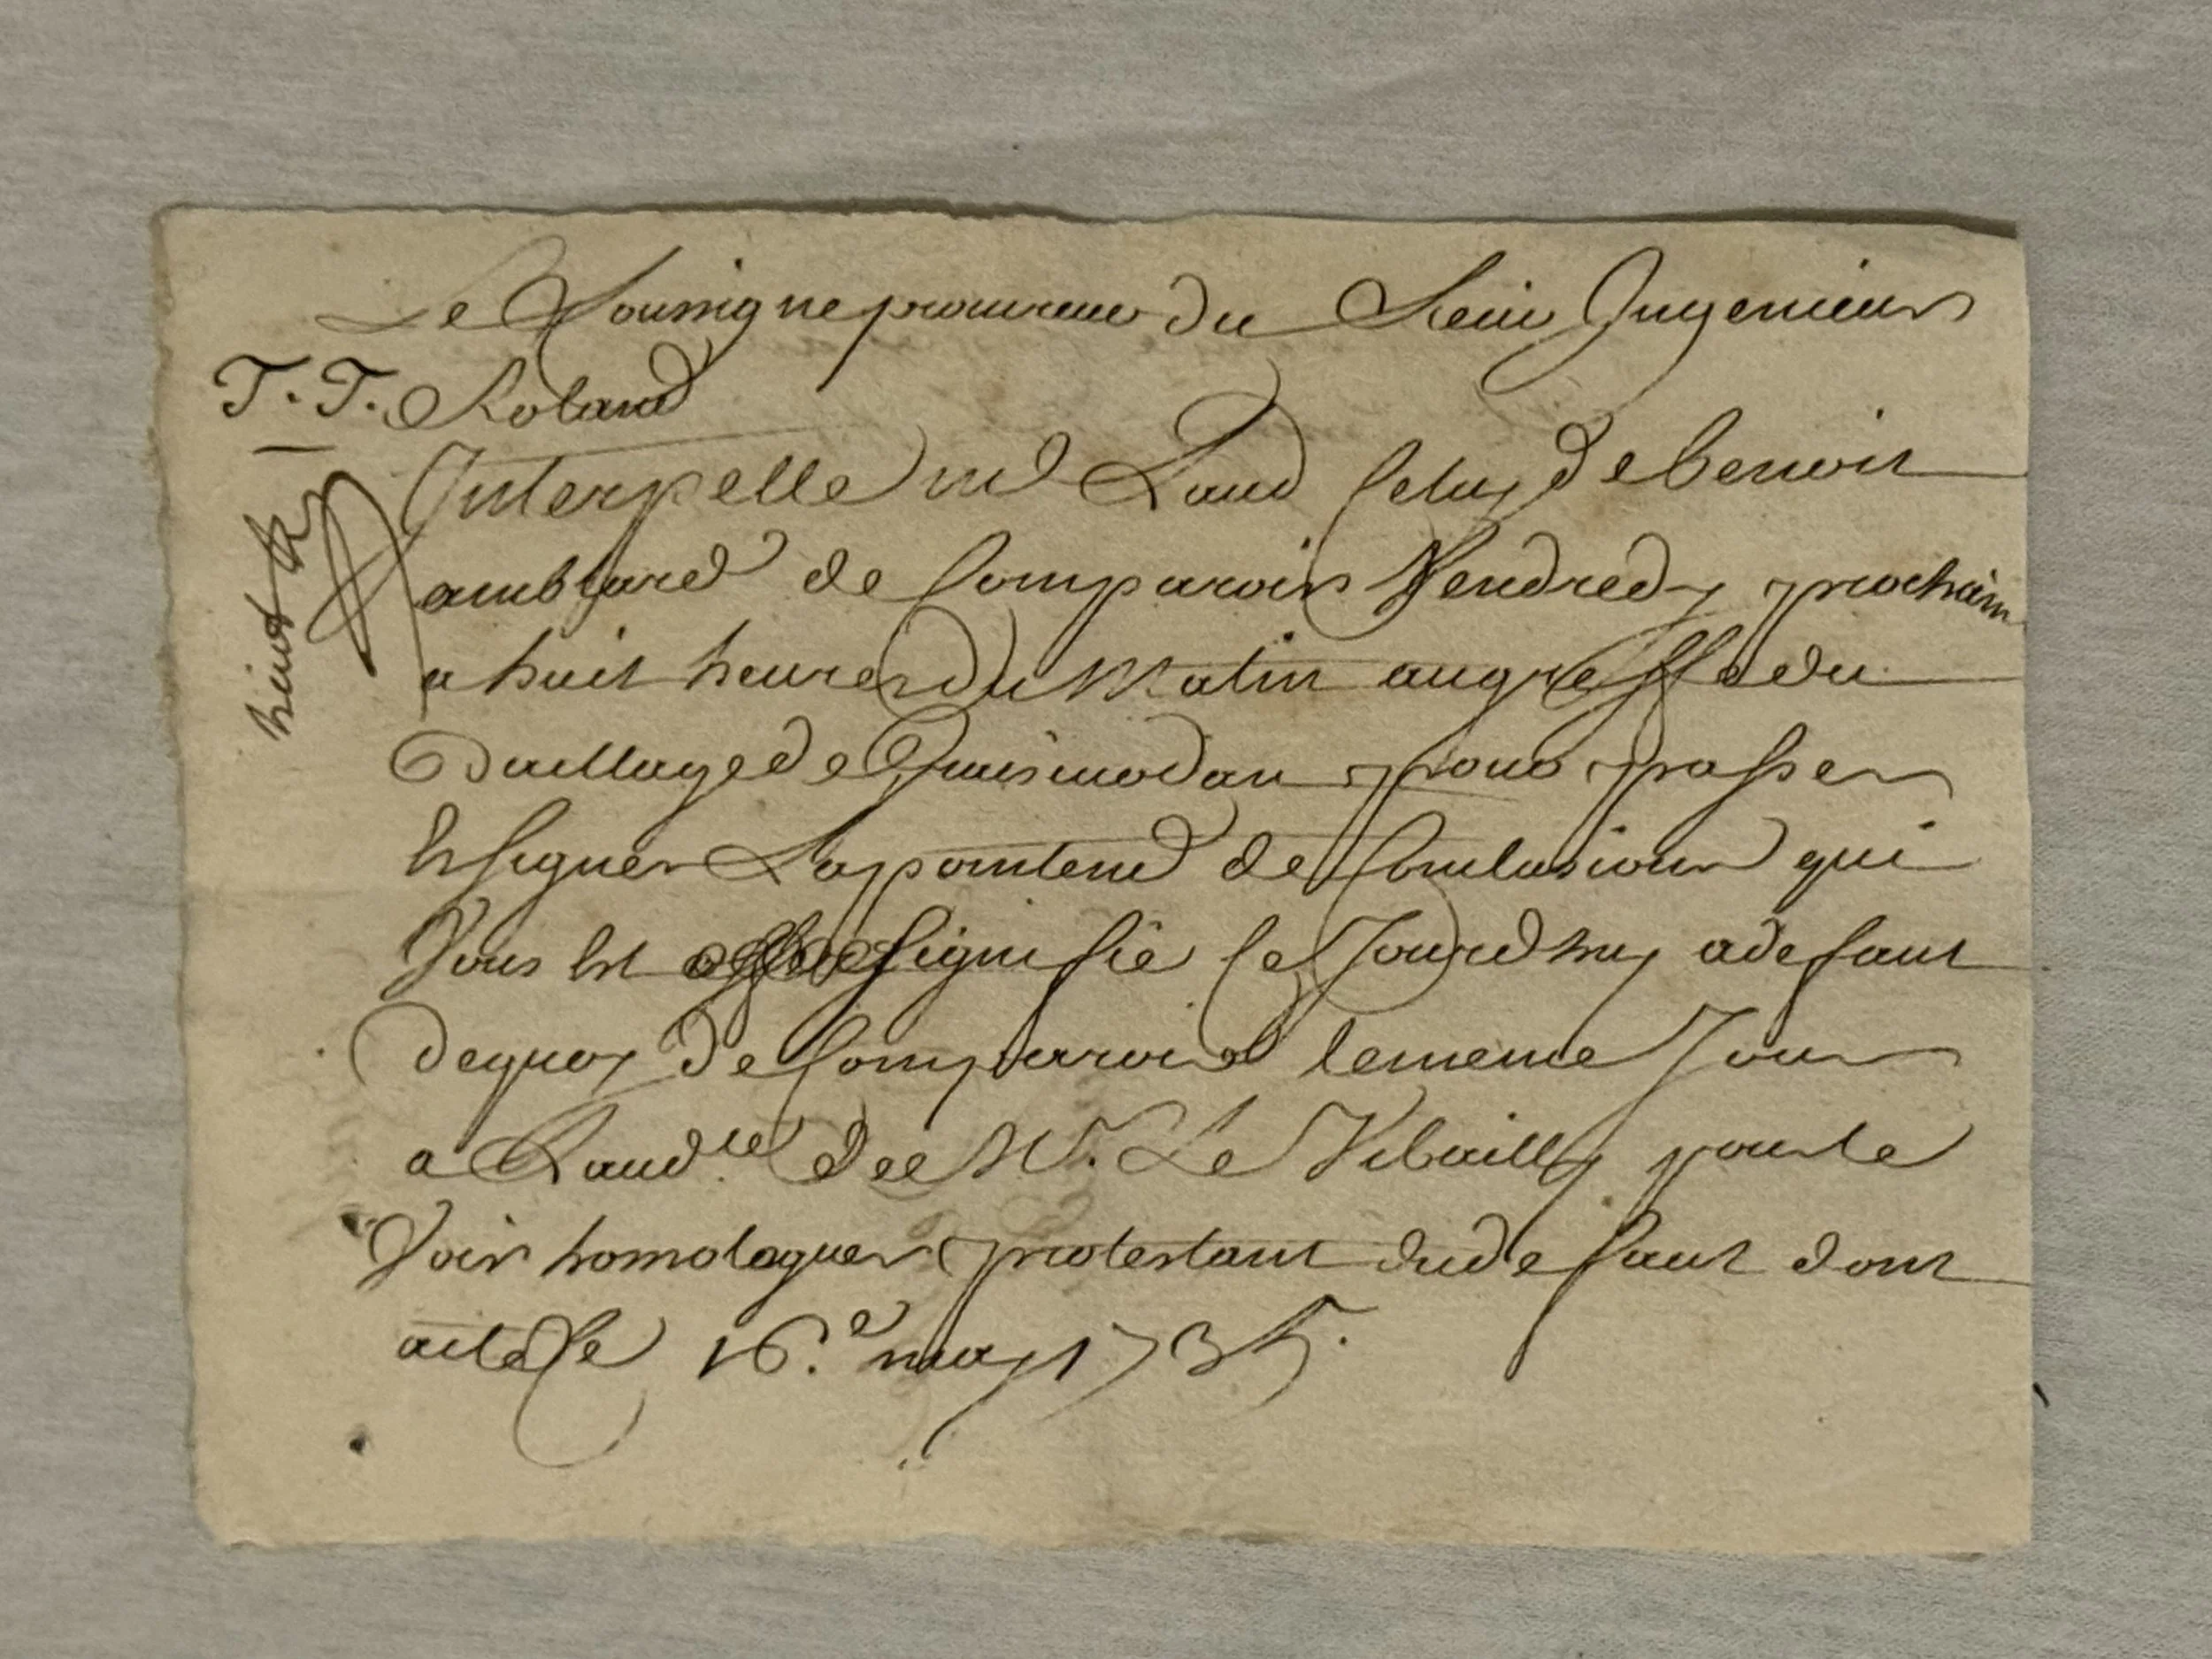 Le Soussigne procureur du Sieur Ingenieur
T. T. Roland
Interpelle me Laud celuy de benoit
amblard de Comparoir Vendredy prochain
a huit heures du Matin au greffe du
Bailliage de pour passer
et signer Lapointemt de Conclusions qui
Vous est signifié ce Jourdhuy a defaut
dequoy de Comparoir le meme Jour
a Laudce de Mr. Le Vibailly pour le
Voir homologuer protestant du defaut dont
acte le 16.e may 1735.